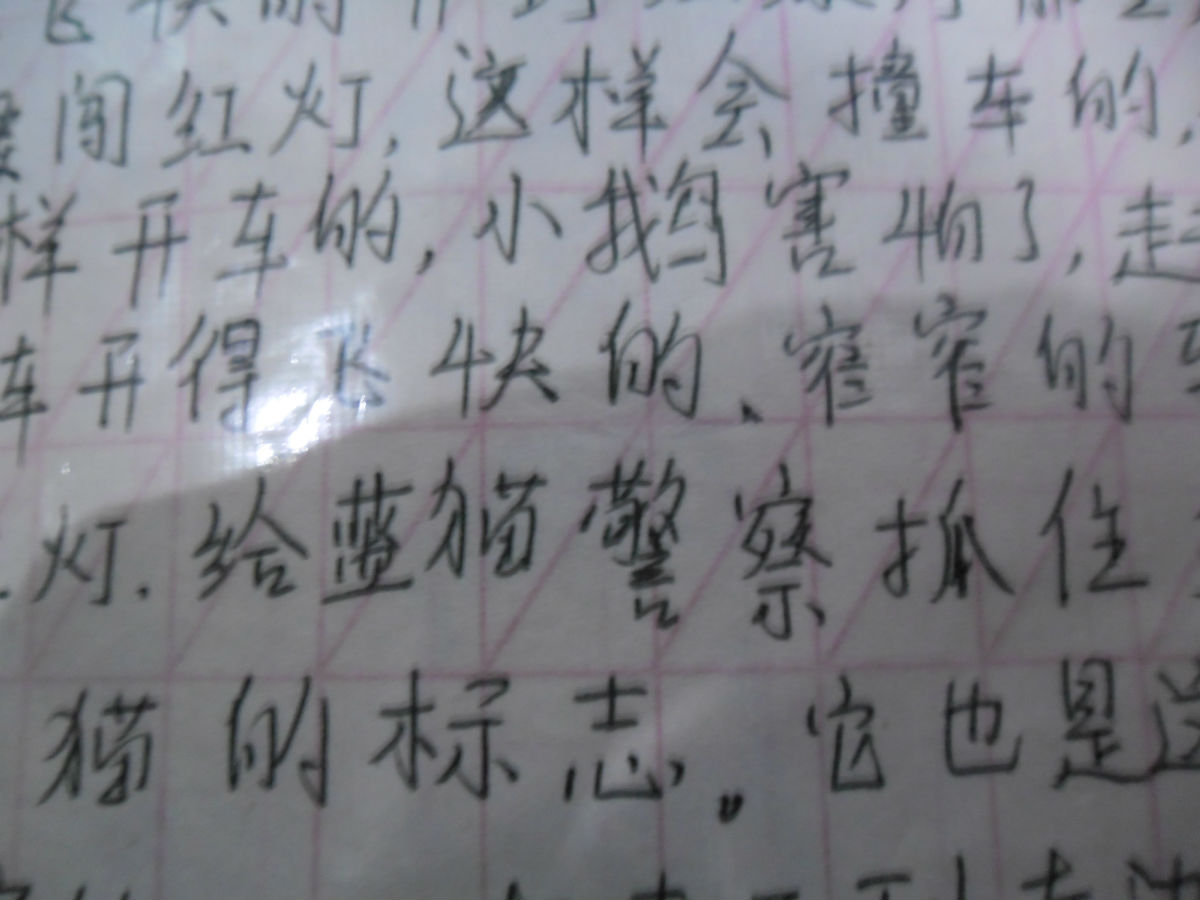 闯红灯,这样会撞车的,
样开车的,小鹅害怕了,赶
车开得飞快的、窄窄的
灯.给蓝猫警察抓住
猫的标志。它也是这